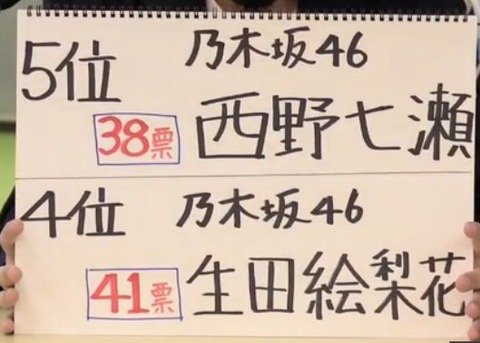 5位 乃木坂46
38票 西野七瀬
4位 乃木坂46
41票 生田絵梨花